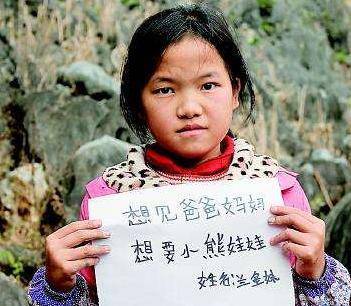 想见爸爸妈妈
想要小熊娃娃
姓名:兰金妹